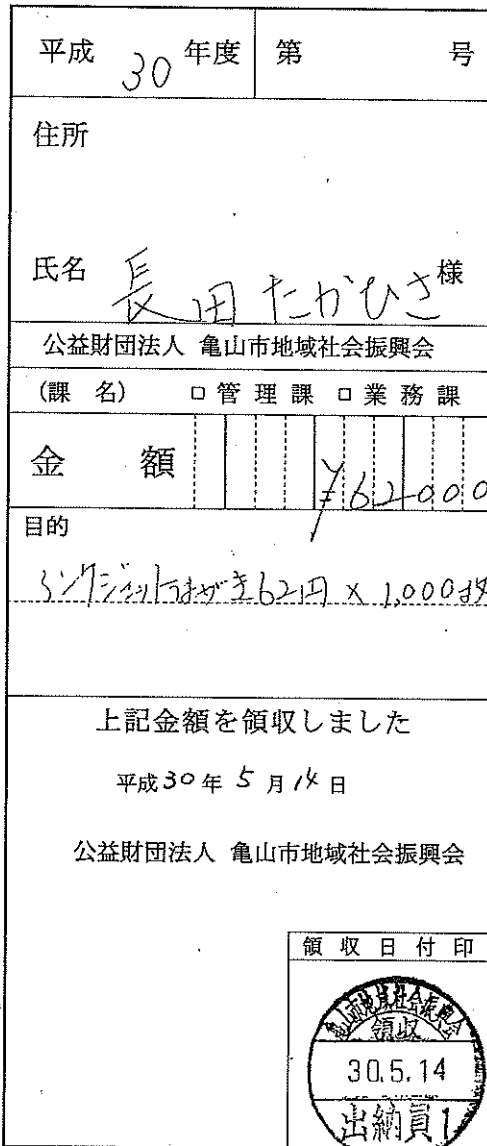 平成 30 年度 第 号
住所
氏名 長田 たかひさ 様
公益財団法人 亀山市地域社会振興会
(課 名) □ 管 理 課 □ 業 務 課
金 額 ¥62000
目的
インクジェットはがき 62円 × 1,000枚
上記金額を領収しました
平成 30 年 5 月 14 日
公益財団法人 亀山市地域社会振興会
領 収 日 付 印
亀山市地域社会振興会
領収
30.5.14
出納員1